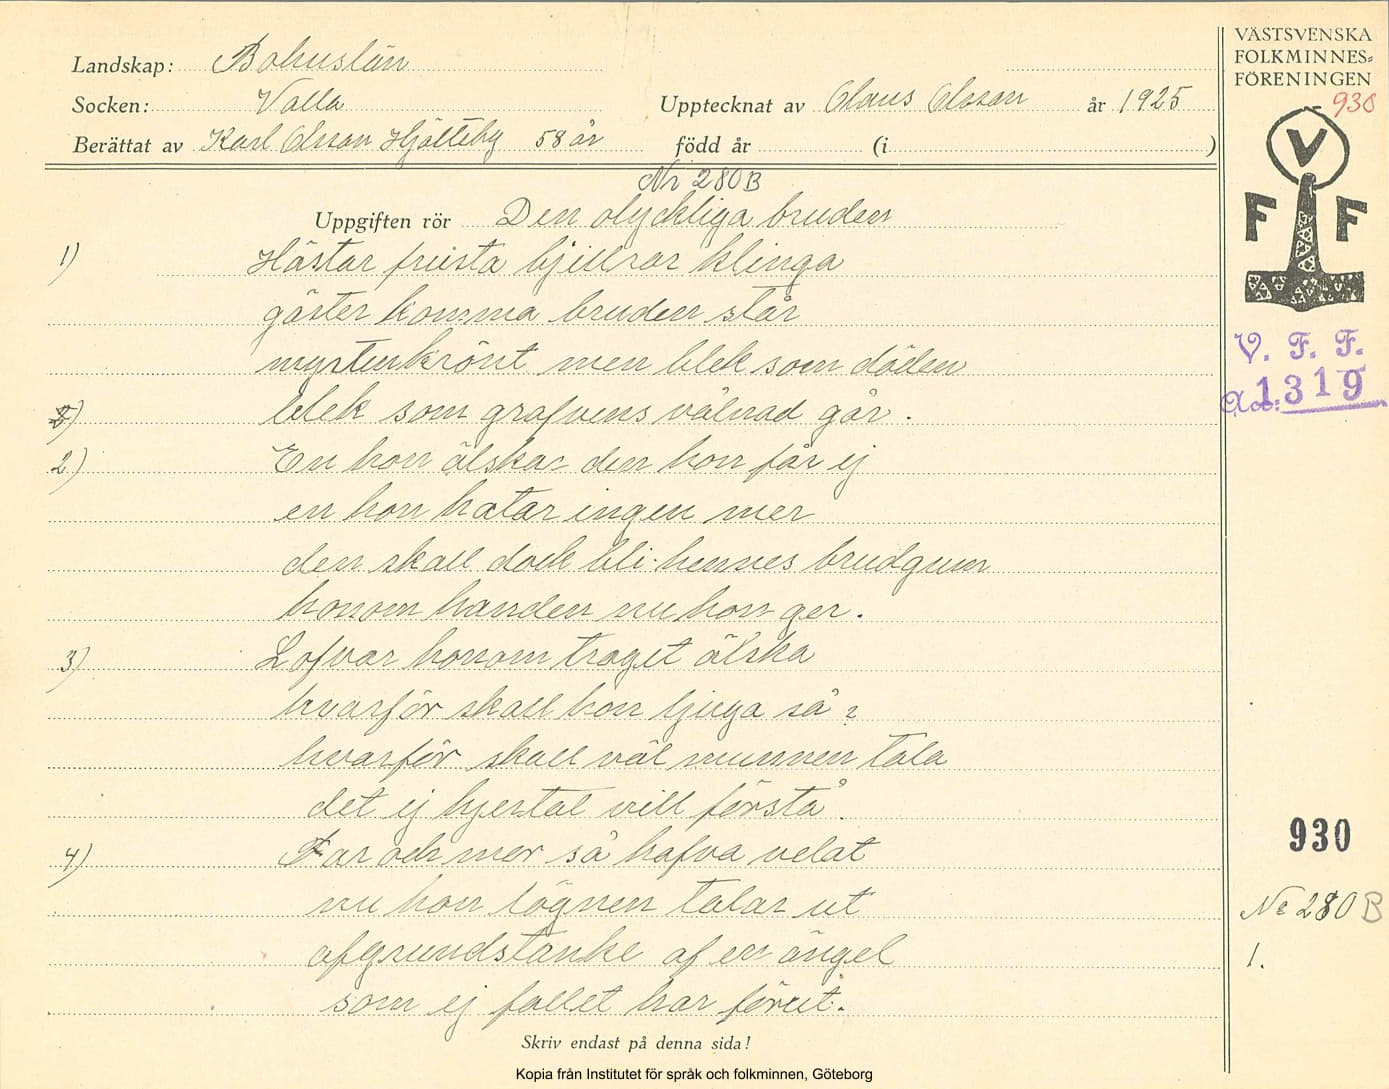 Landskap: Bohuslän
Socken: Valla
Upptecknat av Claus Olsson år 1925
Berättat av Karl Olsson Hjälteby 58 år född år (i )
VÄSTSVENSKA
FOLKMINNES-
FÖRENINGEN
930
V
F F
V. F. F.
Acc: 1319
Nr 280 B
Uppgiften rör Den olyckliga bruden
1) Hästar frusta bjällror klinga
gäster komma bruden står
myrtenkrönt men blek som döden
2) blek som grafvens vålnad går.
2) En hon älskar den hon får ej
en hon hatar ingen mer
den skall dock bli hennes brudgum
honom handen nu hon ger.
3) Lofvar honom troget älska
hvarför skall hon ljuga så?
hvarför skall väl munnen tala
det ej hjertat vill förstå.
4) Far och mor så hafva velat
nu hon lögnen talar ut
afgrundstanke af en ängel
som ej fallet har förut.
930
Nr 280 B
1.
Skriv endast på denna sida!
Kopia från Institutet för språk och folkminnen, Göteborg